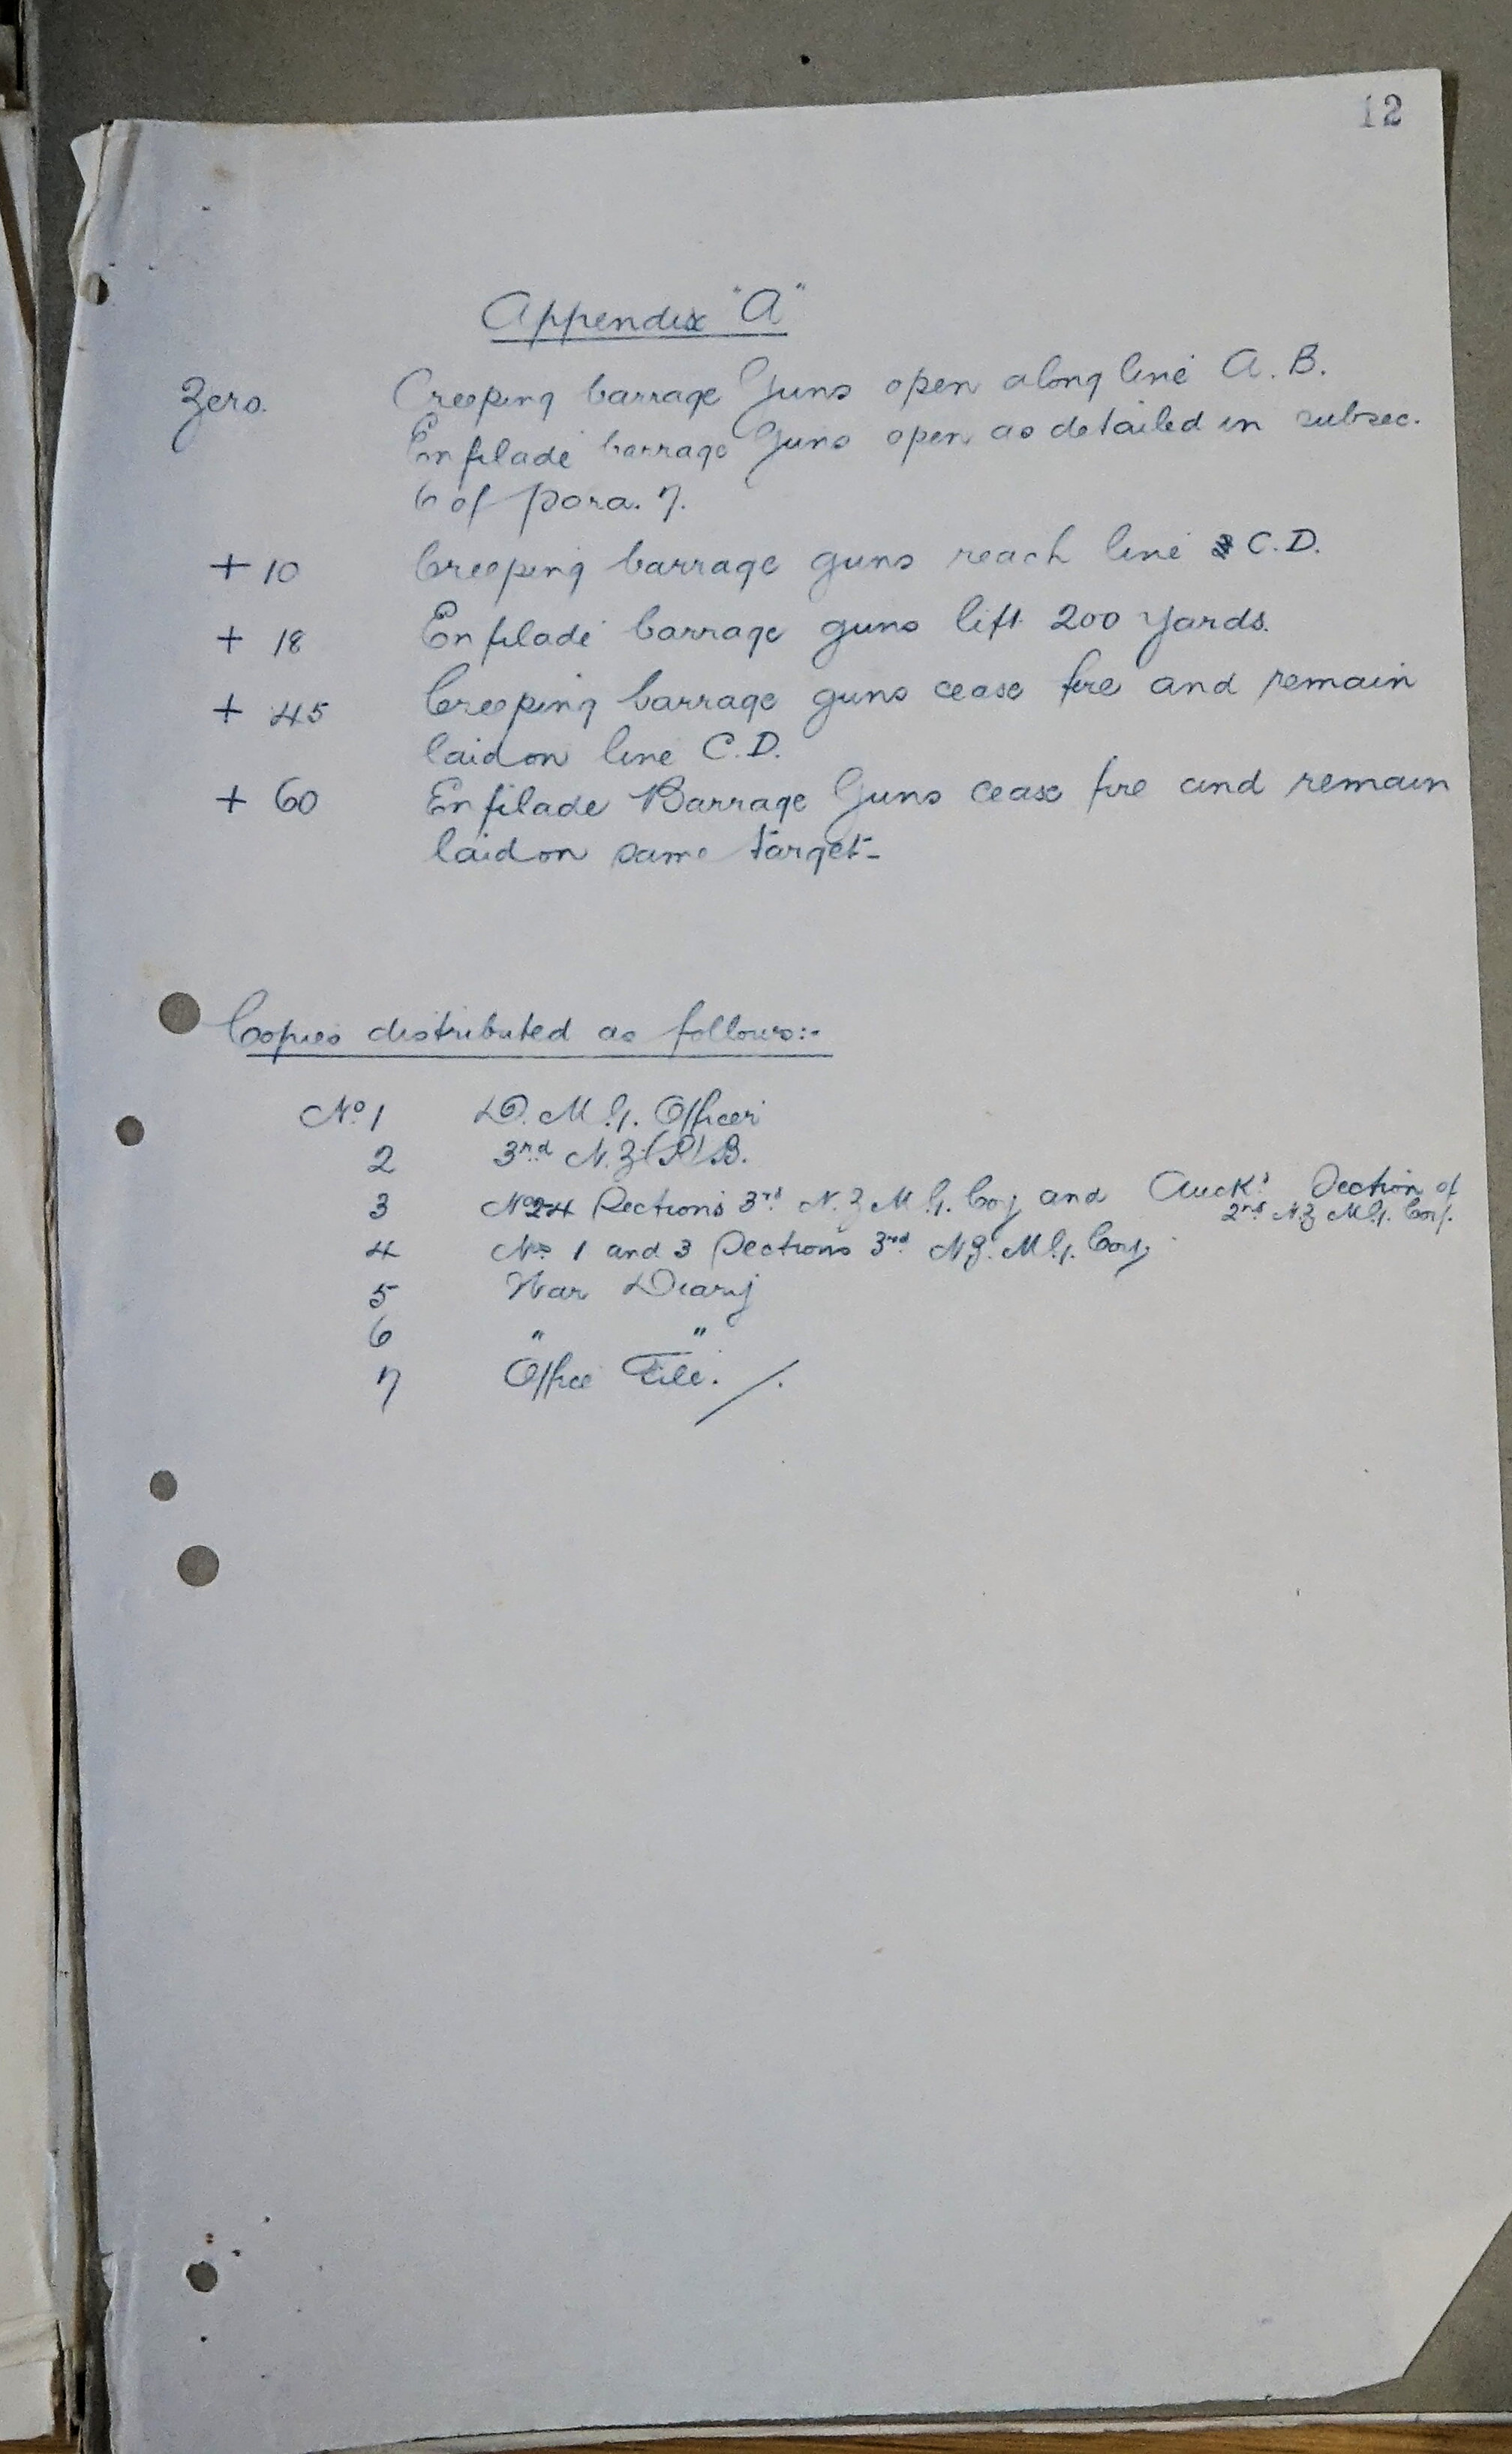 12
Appendix "A"
Zero. Creeping barrage Guns open along line A. B.
Enfilade barrage Guns open as detailed in subsec.
6 of para. 7.
+ 10 Creeping barrage guns reach line C.D.
+ 18 Enfilade barrage guns lift 200 yards.
+ 45 Creeping barrage guns cease fire and remain
laid on line C.D.
+ 60 Enfilade Barrage Guns cease fire and remain
laid on same target-
Copies distributed as follows:-
No. 1 D. M. G. Officer
2 3rd N.Z.(R)B.
3 2 4 Sections 3rd N.Z M.G. Coy and Auck. Section of
2nd N.Z M.G. Coy.
4 Nos 1 and 3 Sections 3rd N.Z. M.G. Coy
5 War Diary
6 " "
7 Office File. /.